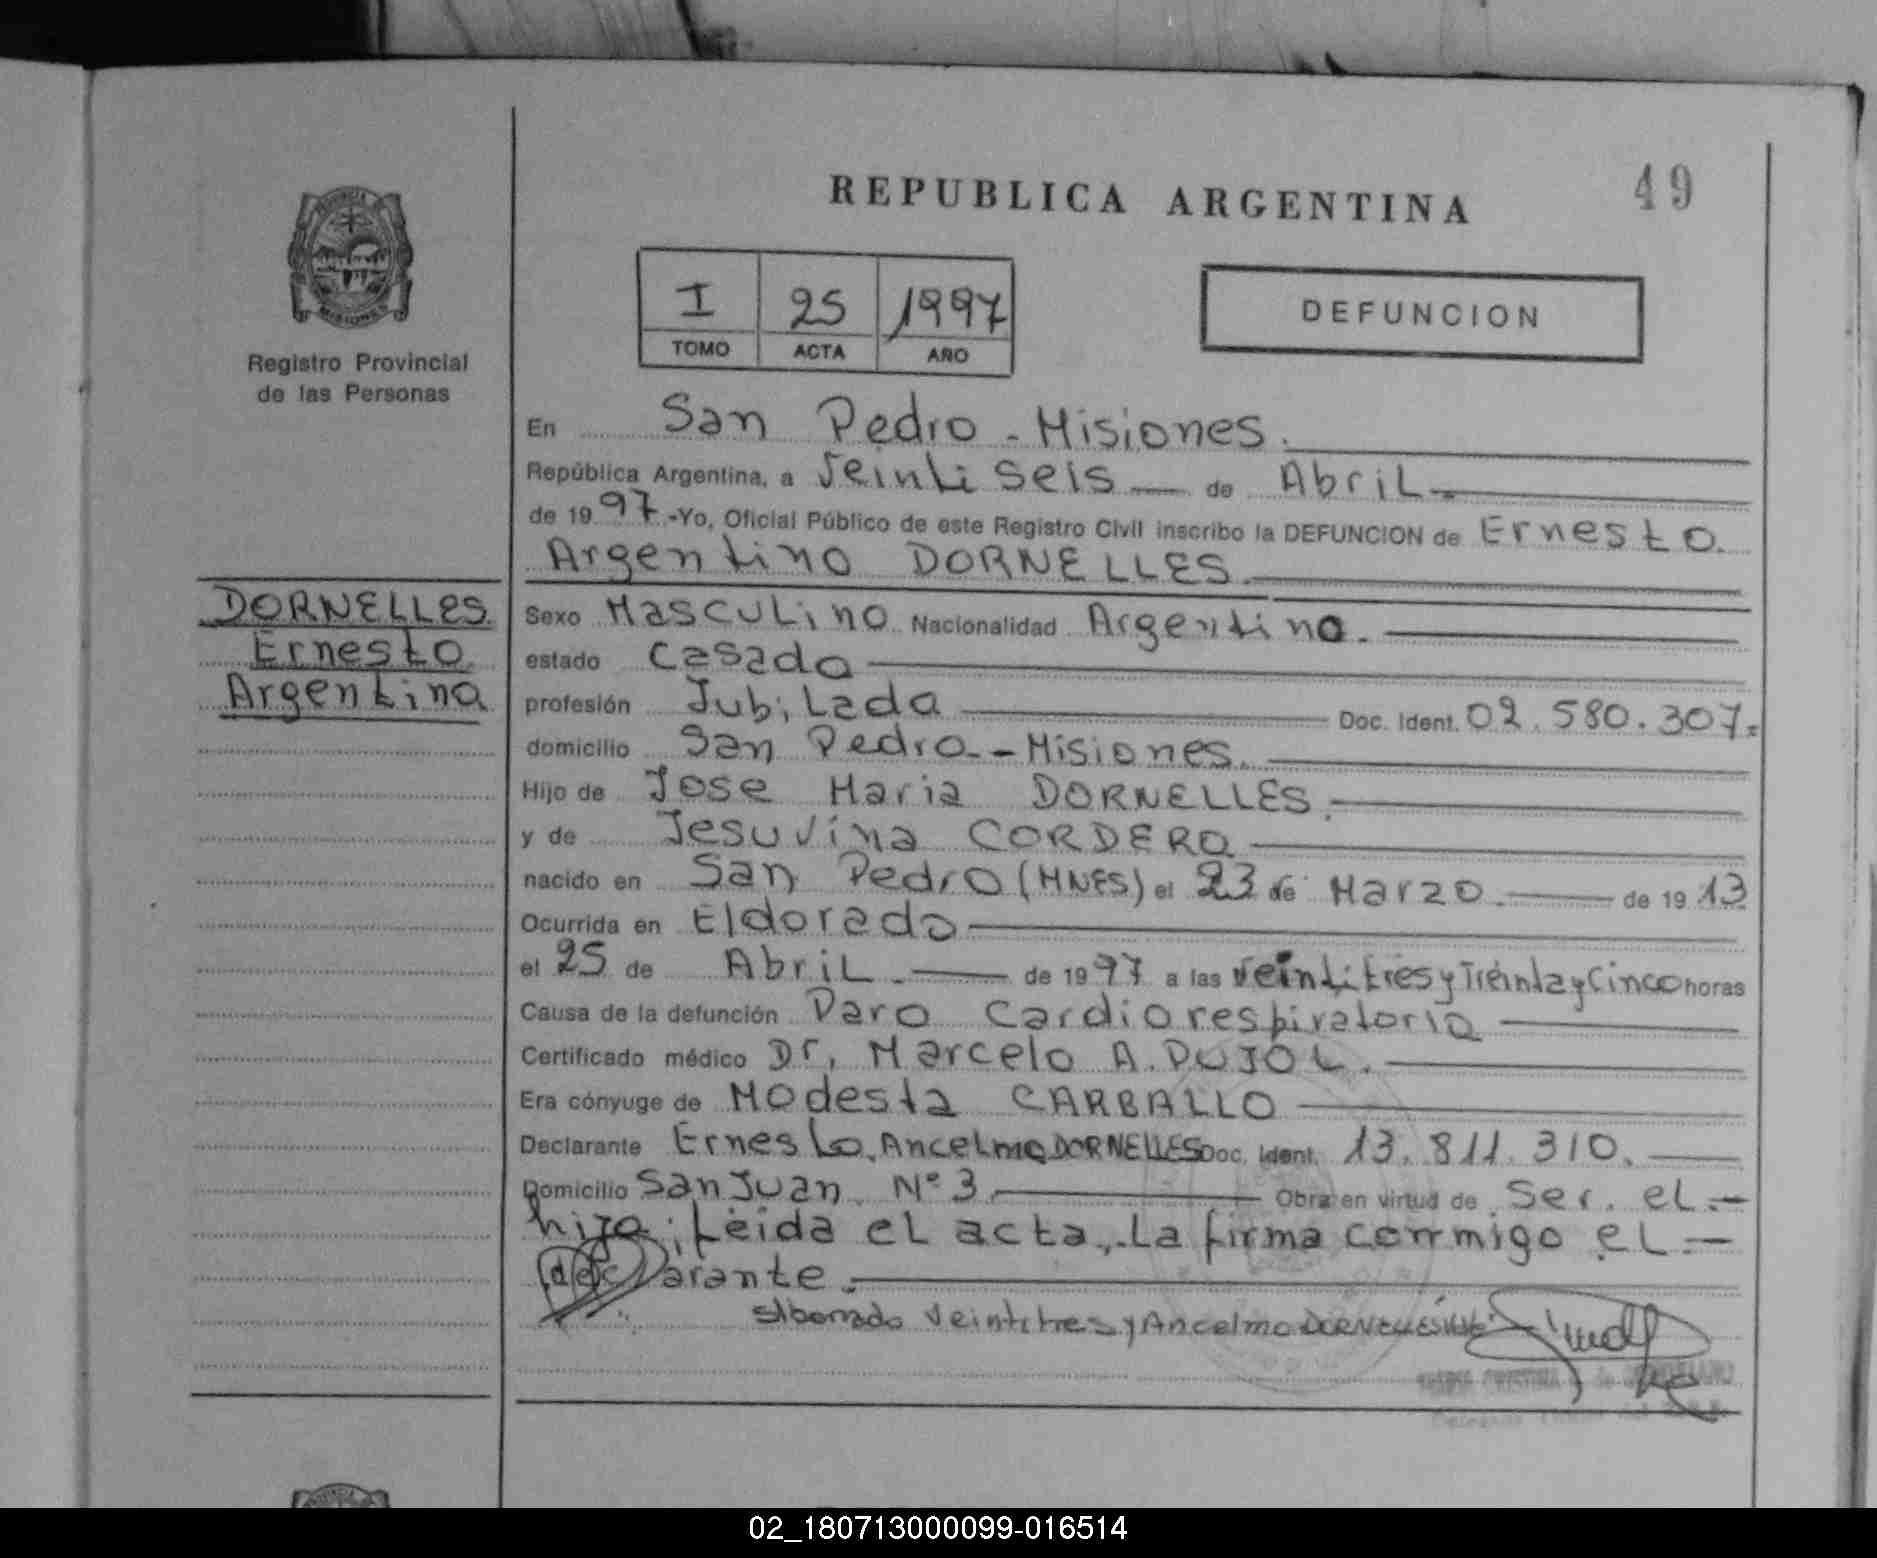 REPUBLICA ARGENTINA
49
PROVINCIA
MISIONES
Registro Provincial
de las Personas
I 25 1997
TOMO ACTA AÑO
DEFUNCION
En San Pedro - Misiones.
República Argentina, a Veinti Seis de Abril.
de 1997.-Yo, Oficial Público de este Registro Civil inscribo la DEFUNCION de Ernesto
Argentino DORNELLES.
DORNELLES
Ernesto
Argentino
Sexo Masculino Nacionalidad Argentino.
estado Casado
profesión Jubilado Doc. Ident. 02.580.307.
domicilio San Pedro - Misiones.
Hijo de Jose Maria DORNELLES.
y de Jesuvina CORDERO
nacido en San Pedro (MNES) el 23 de Marzo. de 1913
Ocurrida en Eldorado
el 25 de Abril. de 1997 a las Veintitres y Treinta y Cinco horas
Causa de la defunción Paro Cardiorespiratorio
Certificado médico Dr. Marcelo A. DUJOL.
Era cónyuge de Modesta CARBALLO
Declarante Ernesto Ancelmo DORNELLES Doc. Ident. 13.811.310.
Domicilio San Juan Nº 3. Obra en virtud de Ser el.-
hijo; Leida el acta, La firma conmigo el.-
declarante.
S/borrado Veintitres y Ancelmo DORNELLES Vale
02_180713000099-016514